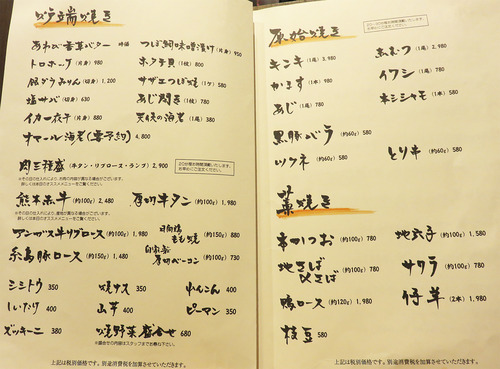 炉端焼き
あわび香草バター 時価
つぼ鯛味噌漬け(片身) 950
トロホッケ(片身) 980
ホタテ貝(1枚) 800
銀ダラみりん(切身) 1,200
サザエつぼ焼(1ケ) 580
塩サバ(切身) 630
あじ開き(1枚) 780
イカ一夜干(片身) 880
天使の海老(1尾) 380
オマール海老(要予約) 4,800
肉三種盛(牛タン・リブロース・ランプ) 2,900
熊本赤牛(約100g) 2,480
厚切牛タン(約100g) 1,980
アンガス牛リブロース(約100g) 1,980
日向鶏もも焼(約150g) 880
糸島豚ロース(約150g) 1,480
自家製厚切ベーコン(約100g) 730
シシトウ 350
焼ナス 350
にんにく 400
しいたけ 400
山芋 400
ピーマン 350
ズッキーニ 380
焼野菜盛合せ 680
※盛合せの内容はスタッフまでお尋ね下さい。
上記は税別価格です。別途消費税を加算させていただきます。
原始焼き
キンキ(1尾) 3,980
赤むつ(1尾) 2,980
かます(1本) 980
イワシ(1尾) 780
あじ(1尾) 780
本シシャモ(1本) 580
黒豚バラ(約60g) 580
ツクネ(約60g) 580
とり軟(約60g) 580
藁焼き
本かつお(約100g) 780
地衣子(約100g) 1,580
地さば〆さば(約100g) 780
サワラ(約100g) 780
鴨ロース(約120g) 1,980
仔羊(2本) 1,980
枝豆 580
上記は税別価格です。別途消費税を加算させていただきます。